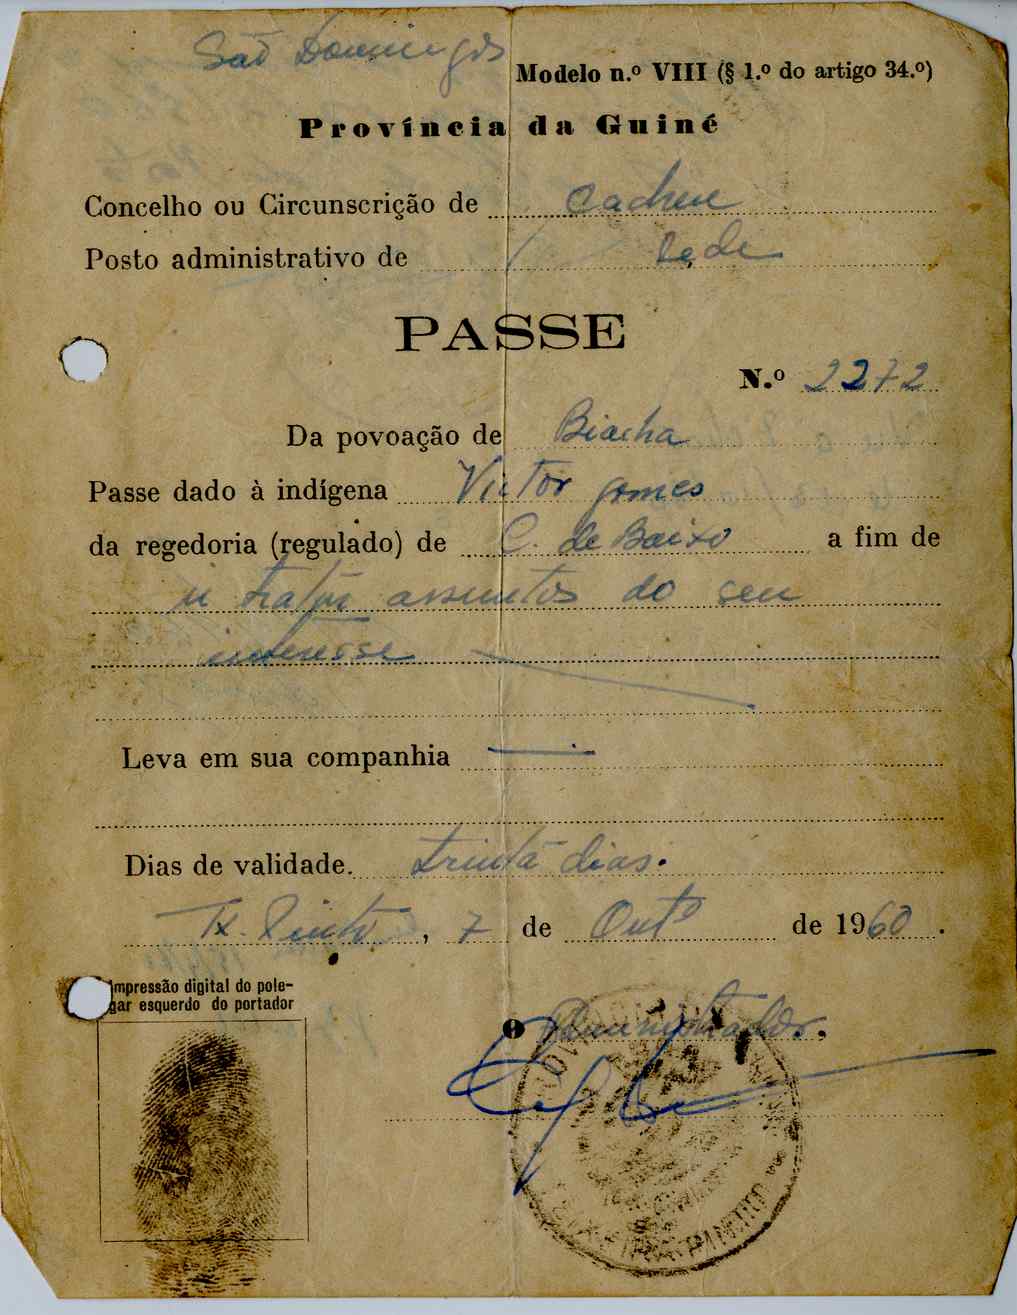 São Domingos
Modelo n.º VIII (§ 1.º do artigo 34.º)
Província da Guiné
Concelho ou Circunscrição de Cacheu
Posto administrativo de Sede
PASSE
N.º 2272
Da povoação de Biacha
Passe dado à indígena Victor gomes
da regedoria (regulado) de C. de Baixo a fim de
ir tratar assuntos do seu
interesse
Leva em sua companhia
Dias de validade. trinta dias.
Tx. Pinto, 7 de Outº de 1960.
Impressão digital do pole-
gar esquerdo do portador
O Administrador,